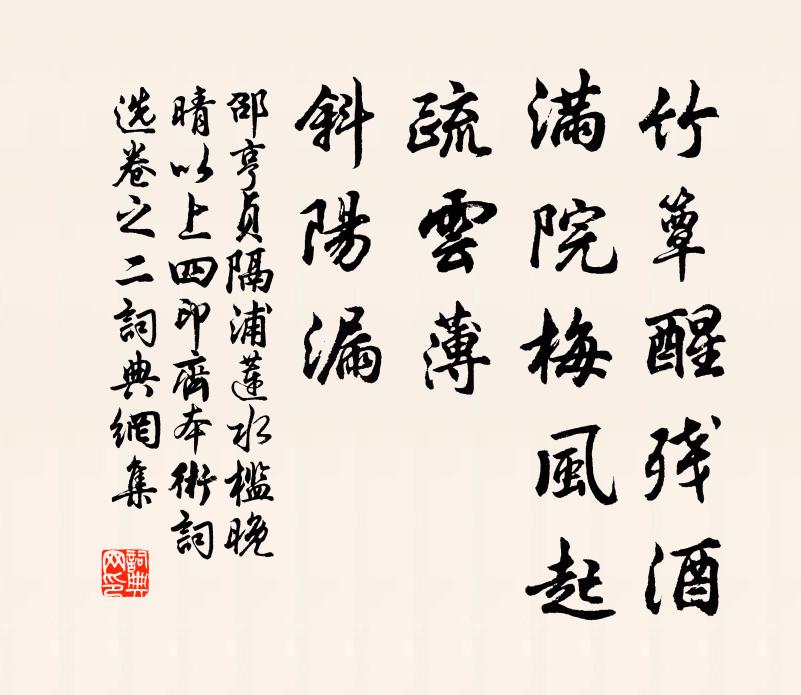 竹簟醒残酒
满院梅風起
疏雲薄
斜陽漏
邵亨貞隔浦蓮水檻晚
晴以上四印齋本術詞
选卷之二詞典網集
詞典
网印